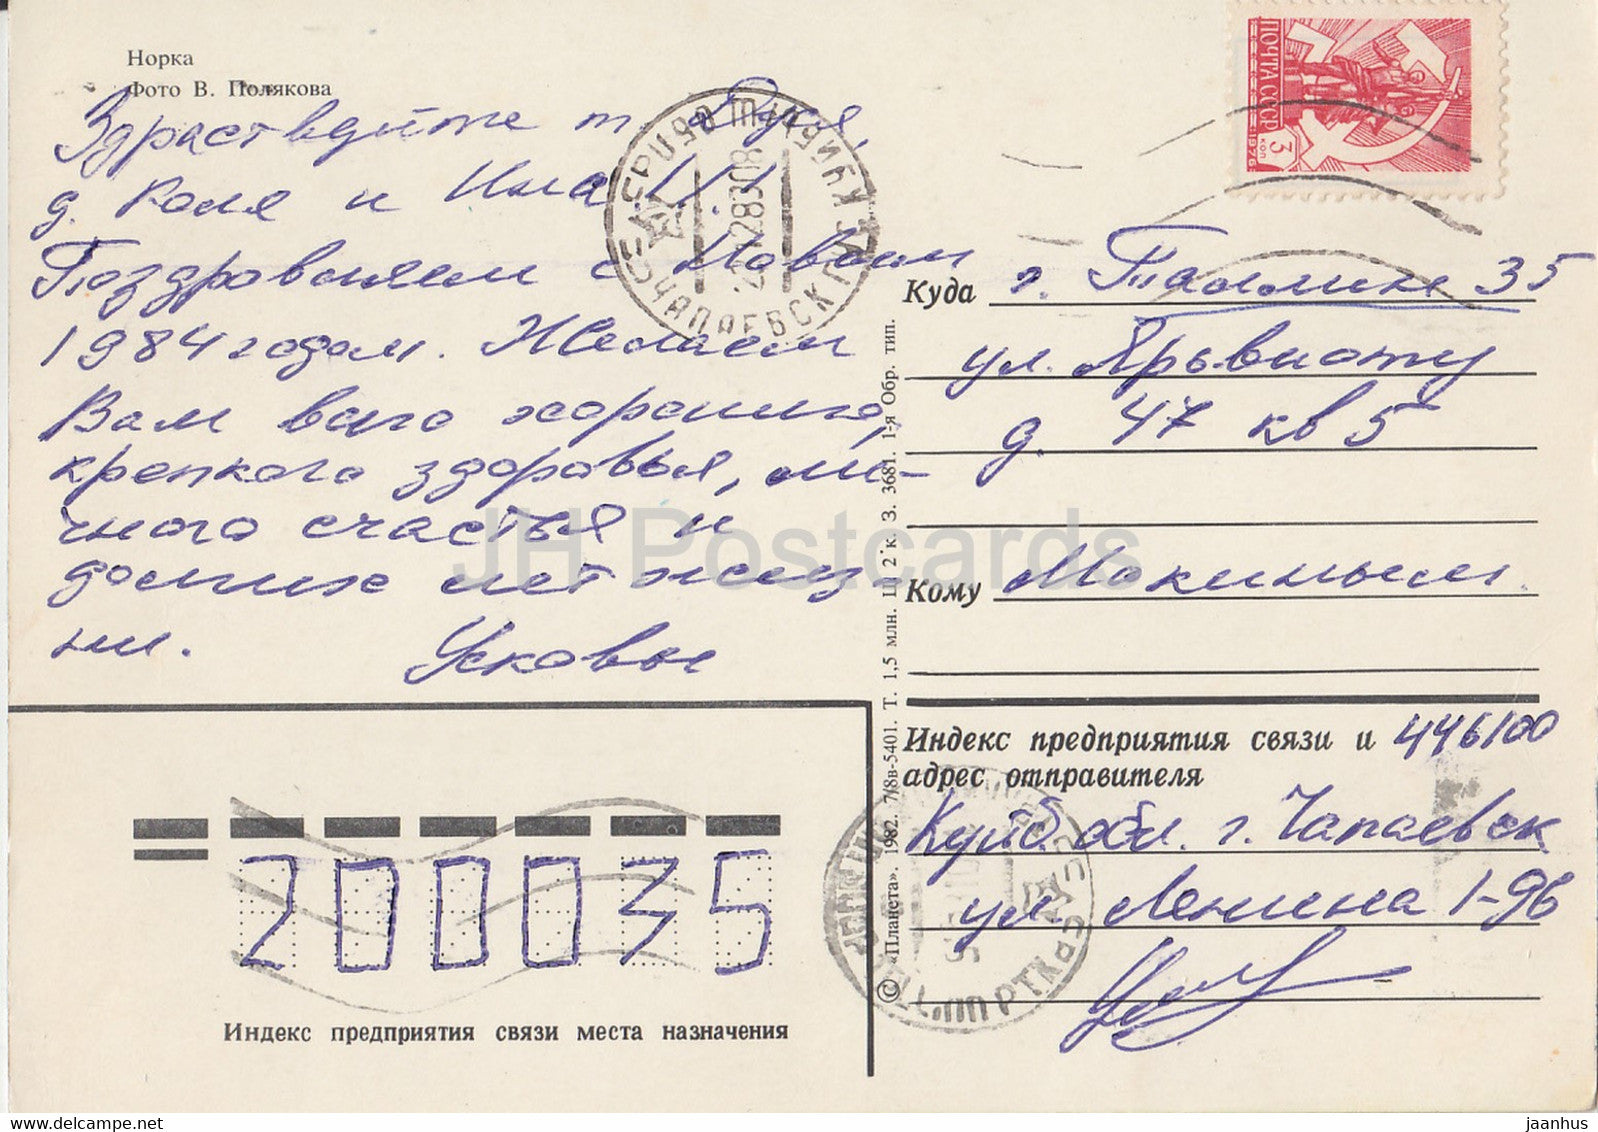 Норка
Фото В. Полякова
Здраствуйте т. Дуся,
д. Коля и Инга!!!
Поздравляем с Новым
1984 годом. Желаем
Вам всего хорошего,
крепкого здоровья, ли-
чного счастья и
долгих лет жиз-
ни. Усковы
ПОЧТА СССР
3 коп
1976
ЧАПАЕВСК
Куда г. Таллин 35
ул. Ярвиоту
д. 47 кв 5
Кому Мокиным.
Индекс предприятия связи и 446100
адрес отправителя
Куйб. обл. г. Чапаевск
ул. Ленина 1-96
200035
Индекс предприятия связи места назначения
© «Планета». 1982. 7/8в-5401. Т. 1,5 млн. Ц. 2 к. З. 3681. 1-я Обр. тип.
JH Postcards
www.hippostcard.com
jaanhus